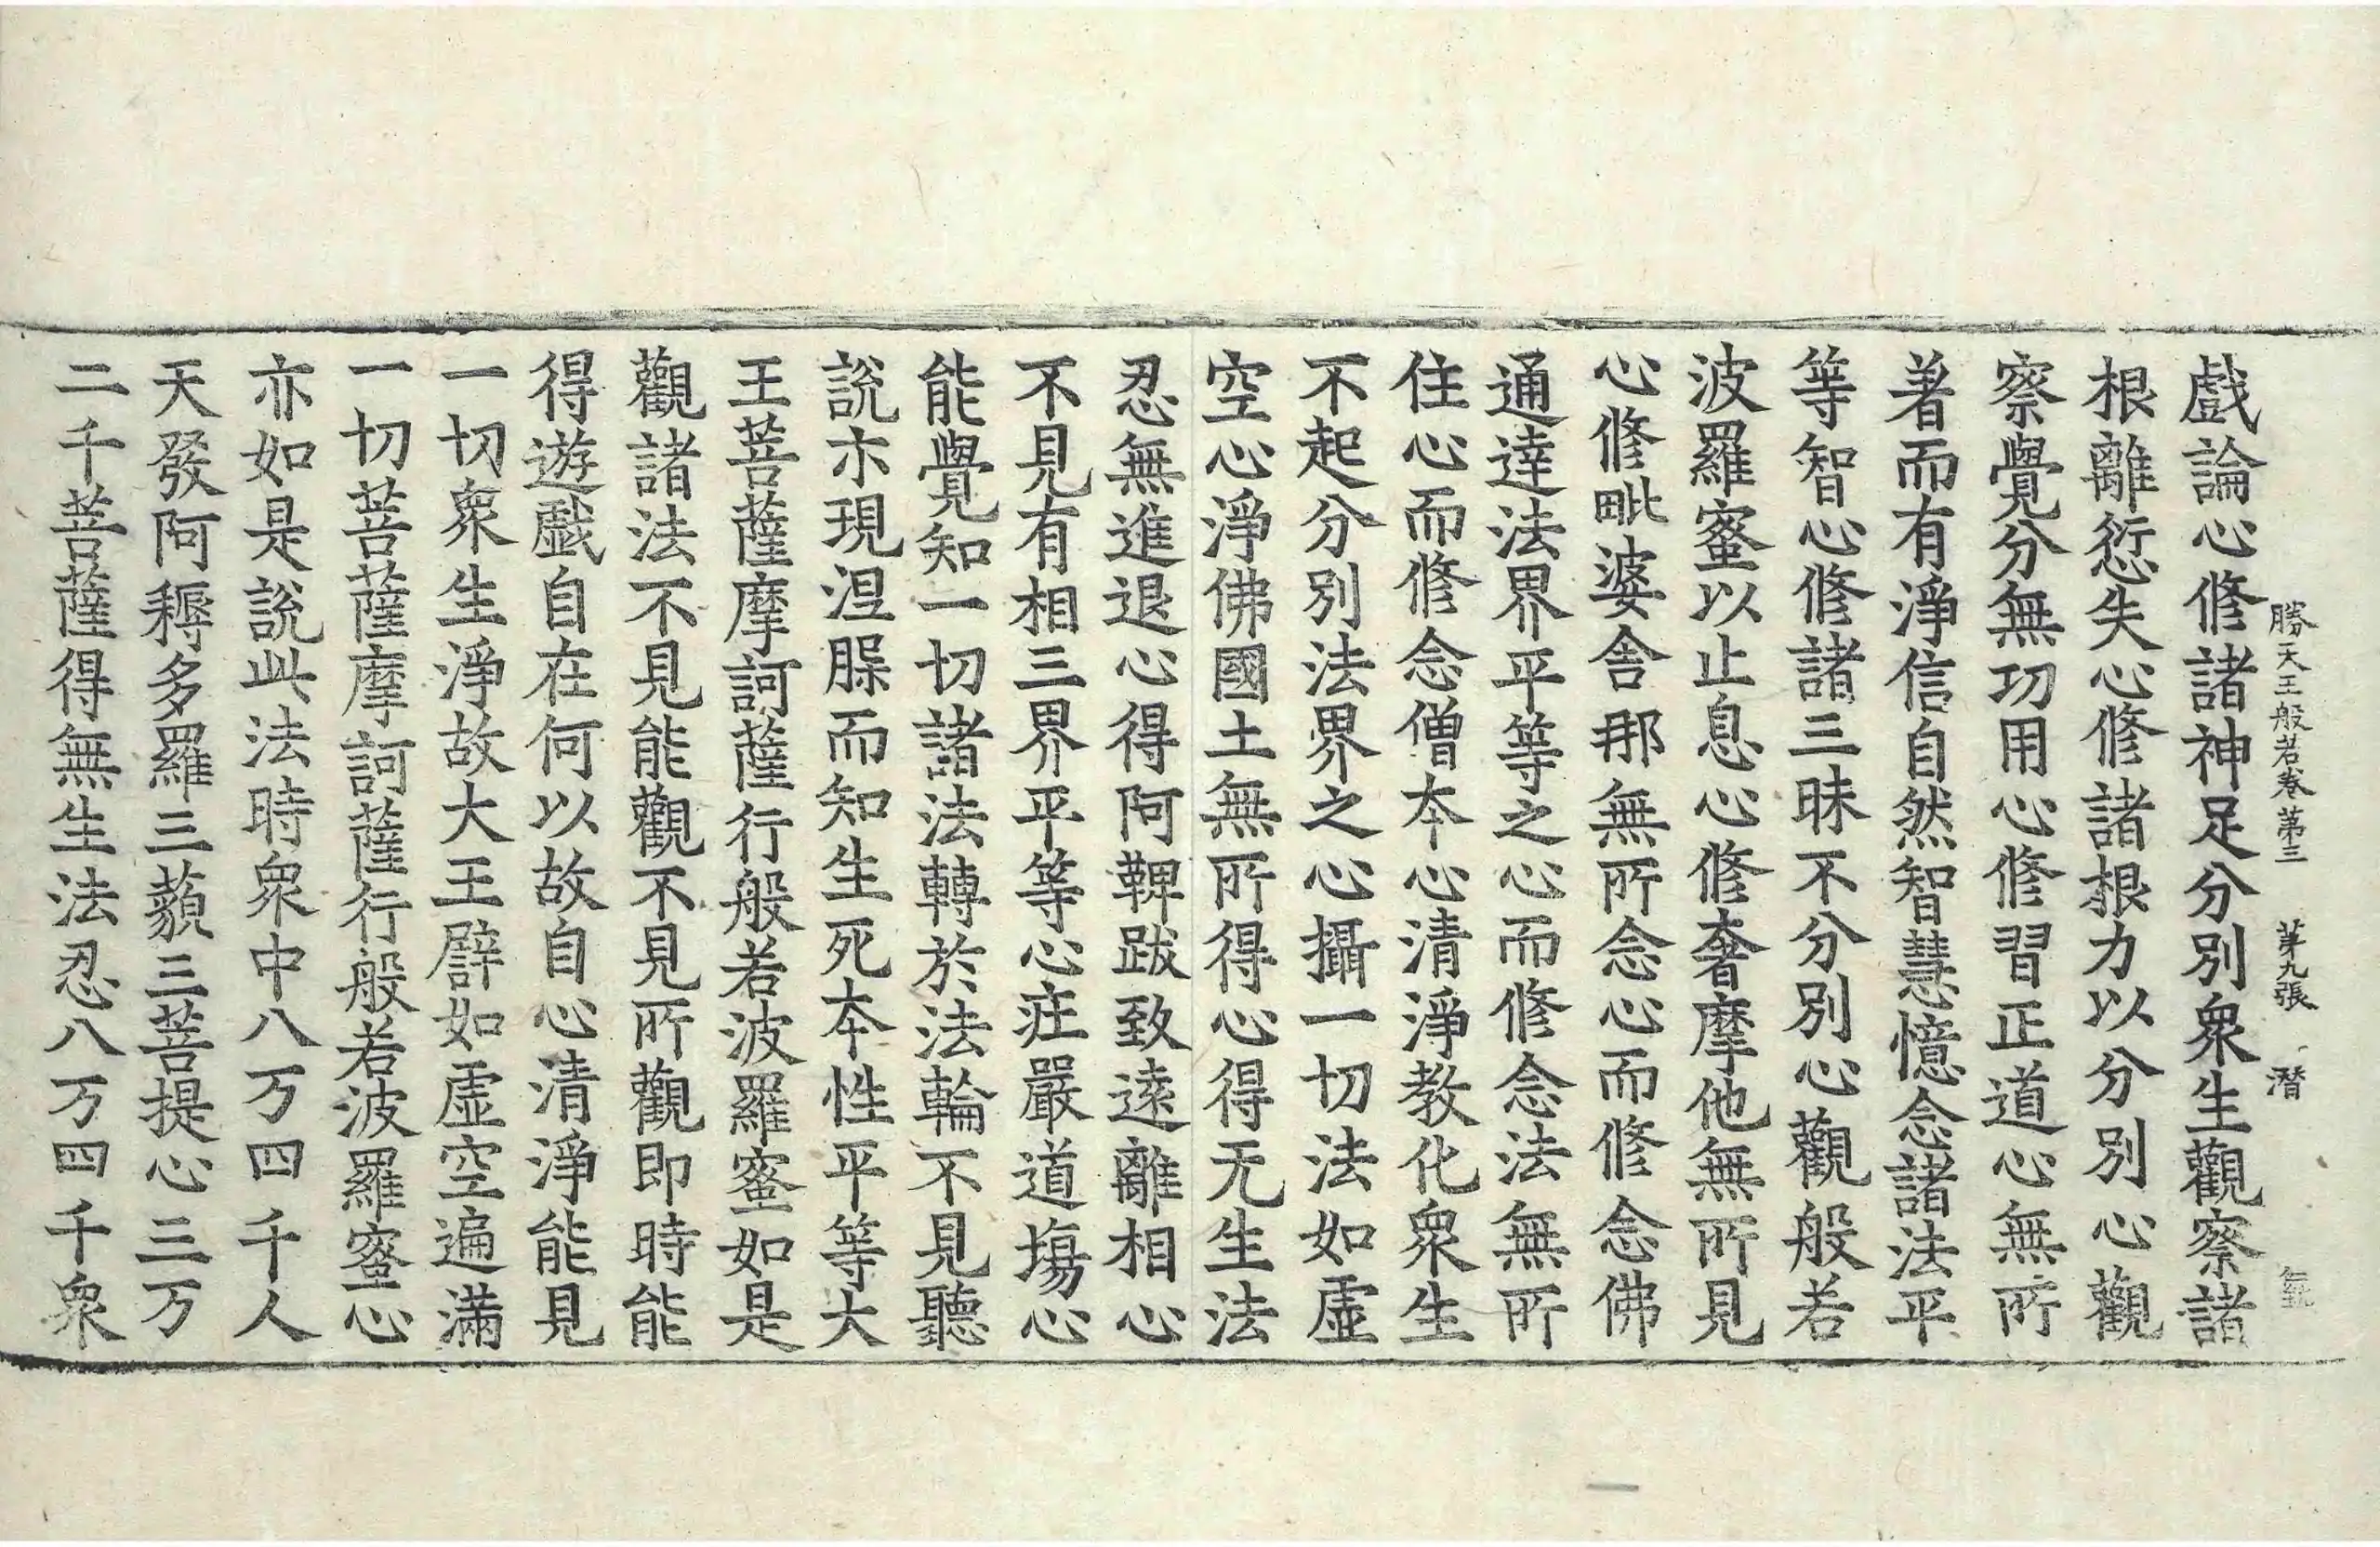 勝天王般若卷第三 第九張 潜
戲論心修諸神足分別衆生觀察諸
根離愆失心修諸根力以分別心觀
察覺分無功用心修習正道心無所
著而有淨信自然智慧憶念諸法平
等智心修諸三昧不分別心觀般若
波羅蜜以止息心修奢摩他無所見
心修毗婆舍那無所念心而修念佛
通達法界平等之心而修念法無所
住心而修念僧本心清淨教化衆生
不起分別法界之心攝一切法如虛
空心淨佛國土無所得心得无生法
忍無進退心得阿鞞跋致遠離相心
不見有相三界平等心庄嚴道場心
能覺知一切諸法轉於法輪不見聽
說亦現涅槃而知生死本性平等大
王菩薩摩訶薩行般若波羅蜜如是
觀諸法不見能觀不見所觀即時能
得遊戲自在何以故自心清淨能見
一切衆生淨故大王譬如虛空遍滿
一切菩薩摩訶薩行般若波羅蜜心
亦如是說此法時衆中八万四千人
天發阿耨多羅三藐三菩提心三万
二千菩薩得無生法忍八万四千衆